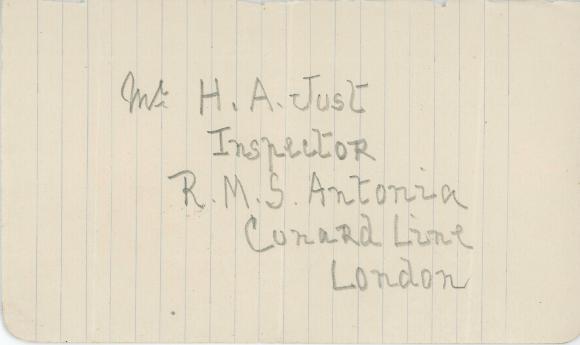 Mr. H. A. Just
Inspector
R. M. S. Antonia
Cunard Line
London